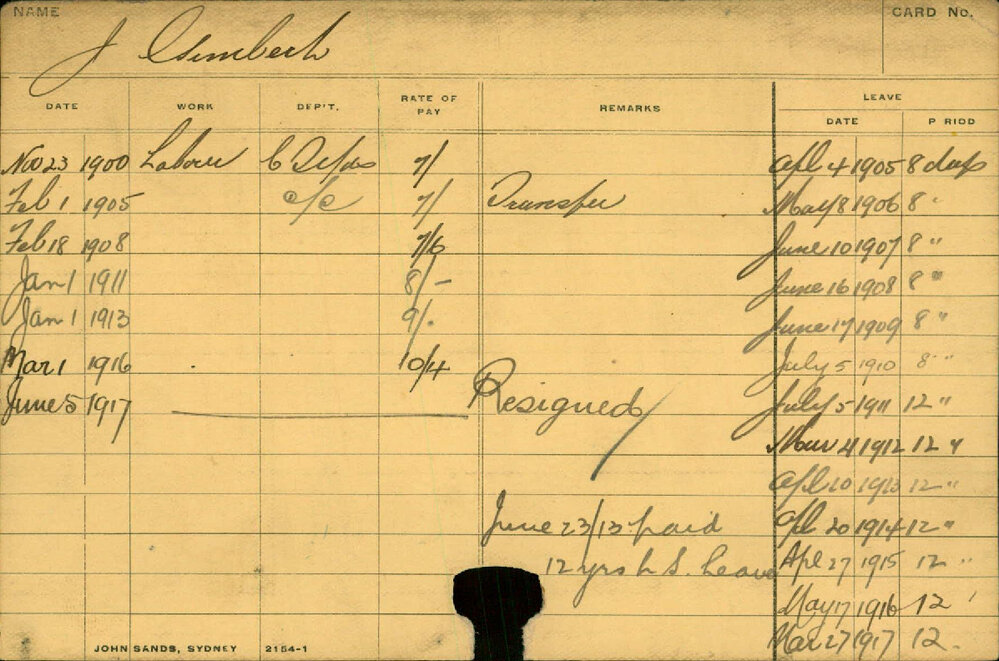 NAME
CARD No.
J
DATE WORK DEP'T. RATE OF PAY REMARKS LEAVE
DATE P RIOD
Nov 23 1900 Labour 7/ Apl 4 1905 8 days
Feb 1 1905 c/c 7/ Transfer May 8 1906 8 "
Feb 18 1908 7/6 June 10 1907 8 "
Jan 1 1911 8/- June 16 1908 8 "
Jan 1 1913 9/. June 17 1909 8 "
Mar 1 1916 10/4 July 5 1910 8 "
June 5 1917 Resigned July 5 1911 12 "
1912 12 "
Apl 10 1913 12 "
June 23/13 paid Apl 20 1914 12 "
12 yrs L S. Leave Apl 27 1915 12 "
May 17 1916 12 '
Mar 27 1917 12.
JOHN SANDS, SYDNEY 2154-1